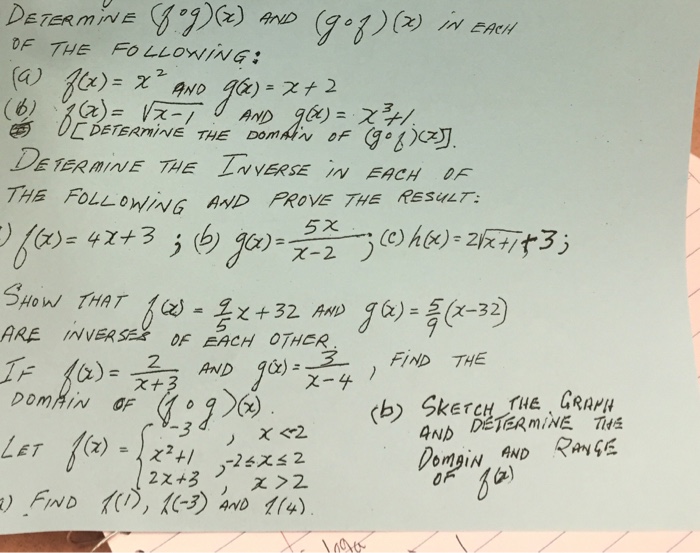 DETERMINE (f∘g)(x) AND (g∘f)(x) IN EACH
OF THE FOLLOWING:
(a) f(x) = x² AND g(x) = x + 2
(b) f(x) = √x-1 AND g(x) = x³+1.
[DETERMINE THE DOMAIN OF (g∘f)(x)].
DETERMINE THE INVERSE IN EACH OF
THE FOLLOWING AND PROVE THE RESULT:
) f(x) = 4x+3 ; (b) g(x) = 5x/x-2 ; (c) h(x) = 2√x+1 + 3 ;
SHOW THAT f(x) = 9/5 x + 32 AND g(x) = 5/9 (x-32)
ARE INVERSES OF EACH OTHER.
IF f(x) = 2/x+3 AND g(x) = 3/x-4 , FIND THE
DOMAIN OF (f∘g)(x).
LET f(x) = { -3 , x<-2
x²+1 , -2≤x≤2
2x+3 , x>2
) FIND f(1), f(-3) AND f(4).
(b) SKETCH THE GRAPH
AND DETERMINE THE
DOMAIN AND RANGE
OF f(x)